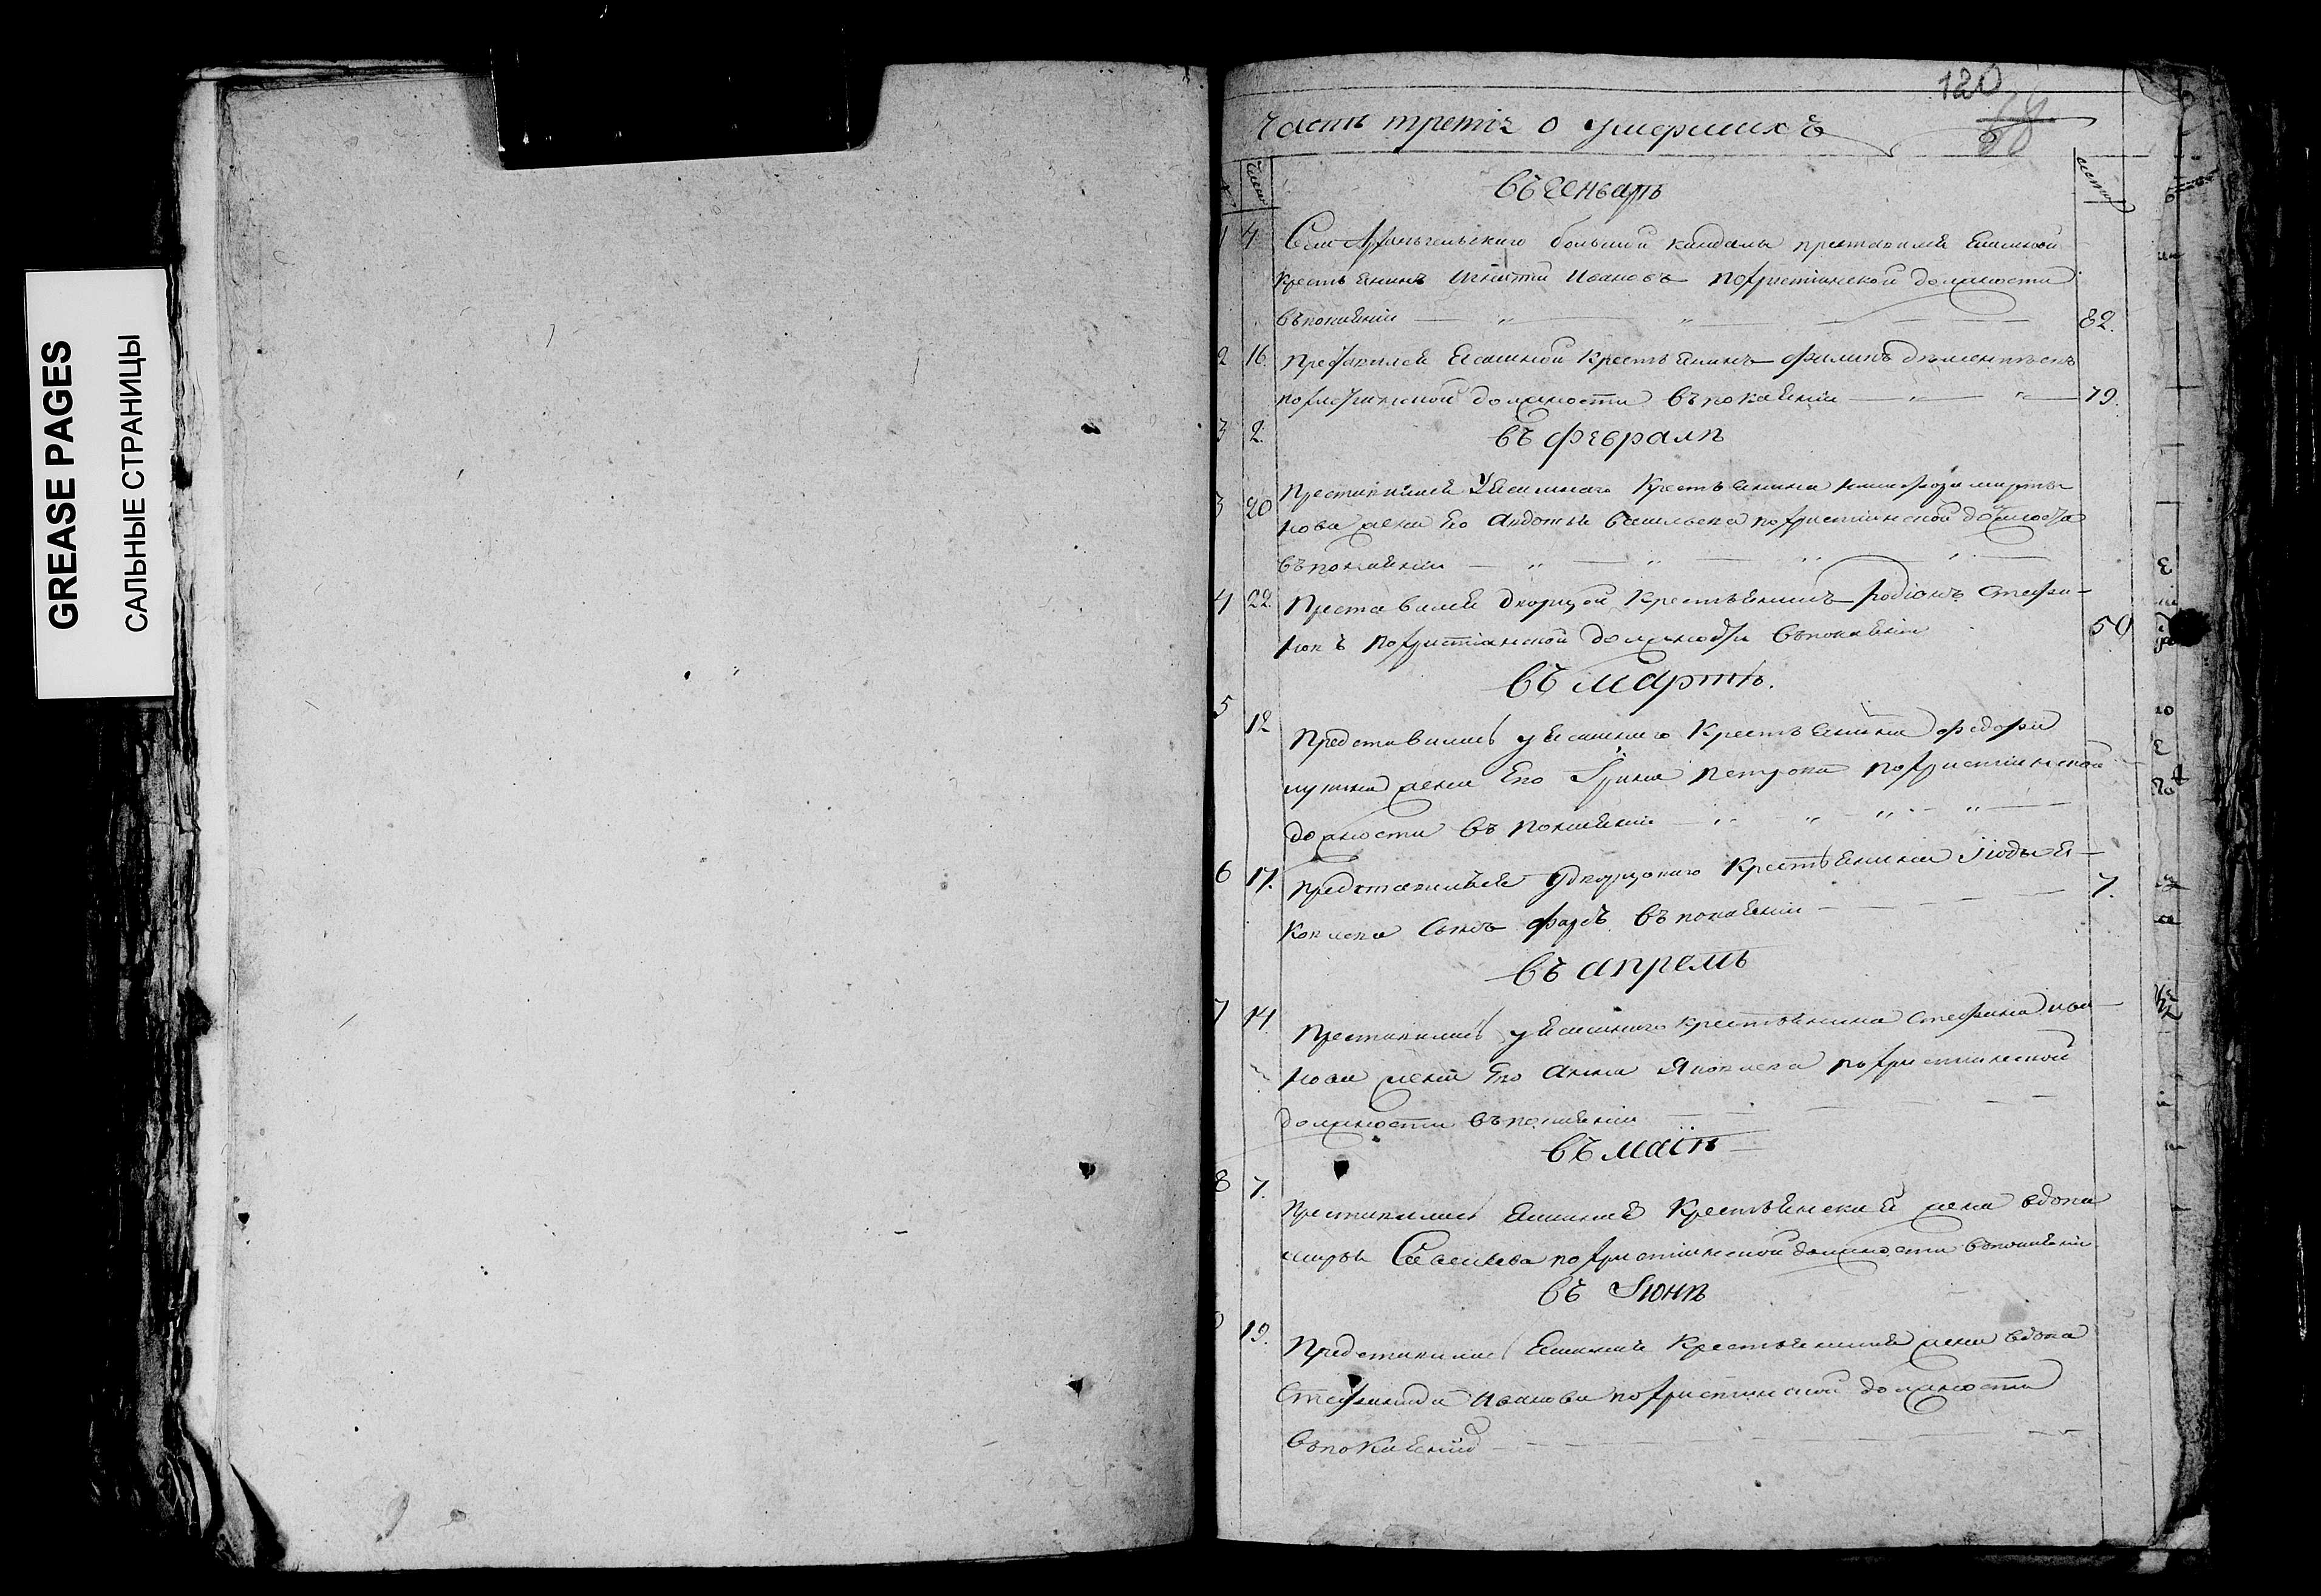 GREASE PAGES
САЛЬНЫЕ СТРАНИЦЫ
120
Часть третіѧ о умершихъ
число
лета
въ генварѣ
1 7 Села Архангельскаго большой кандалы преставился Ясашной
крестьянинъ Игнатій Ивановъ по христіянской должности
въ покаяніи 82.
2 16 Преставился Ясашной крестьянинъ Филипъ
по христіянской должности въ покаяніи 79.
3 2. въ февралѣ
3 20 Преставилася У Ясашнаго крестьянина Никифора Марты
нова жена Его Авдотья Васильева по христіянской должности
въ покаяніи
4 22. Преставился дворцовой крестьянинъ Родіонъ Стефа-
новъ по христіянской должности въ покаяніи 50
въ мартѣ.
5 12 Представилась у Ясашнаго крестьянина Федора
жена Его Ірина Петрова по христіянской
должности въ покаяніи
6 17. Представился У дворцоваго крестьянина
Сынъ въ покаяніи 7.
въ апрелѣ
7 14 Преставилась у Ясашнаго крестьянина Стефана Ива
нова жена Его Анна Яковлева по христіянской
должности въ покаяніи
въ маіѣ
8 7. Преставилась Ясашная Крестьянская жена вдова
Савельева по христіянской должности въ покаяніи
въ Iюнѣ
19. Представилась Ясашная Крестьянская жена вдова
Стефанида Иванова по христіянской должности
въ покаяніи